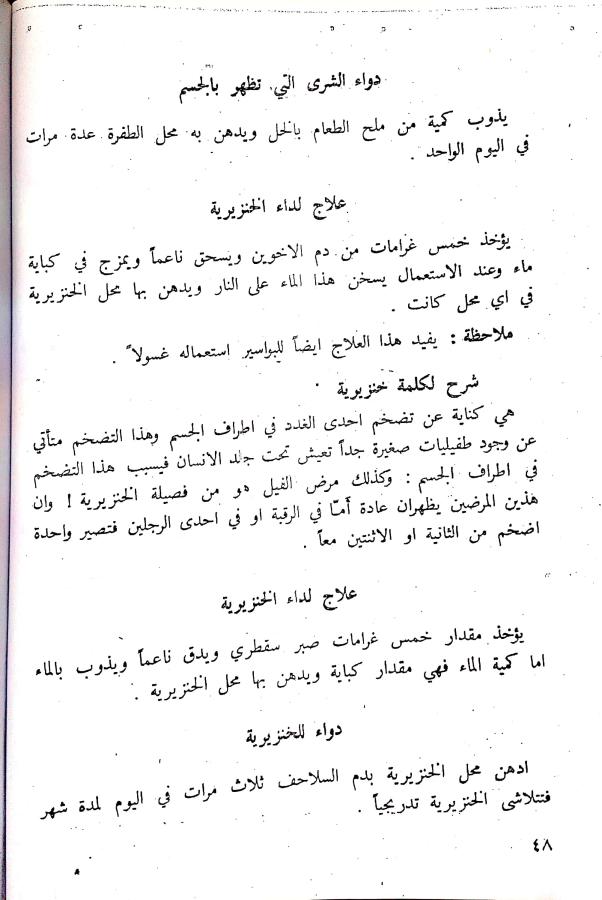 دواء الشرى التي تظهر بالجسم
يذوب كمية من ملح الطعام بالخل ويدهن به محل الطفرة عدة مرات
في اليوم الواحد .
علاج لداء الخنزيرية
يؤخذ خمس غرامات من دم الاخوين ويسحق ناعماً ويمزج في كباية
ماء وعند الاستعمال يسخن هذا الماء على النار ويدهن بها محل الخنزيرية
في اي محل كانت .
ملاحظة : يفيد هذا العلاج ايضاً للبواسير استعماله غسولاً .
شرح لكلمة خنزيرية .
هي كناية عن تضخم احدى الغدد في اطراف الجسم وهذا التضخم متأتي
عن وجود طفيليات صغيرة جداً تعيش تحت جلد الانسان فيسبب هذا التضخم
في اطراف الجسم : وكذلك مرض الفيل هو من فصيلة الخنزيرية ! وان
هذين المرضين يظهران عادة أمّا في الرقبة او في احدى الرجلين فتصير واحدة
اضخم من الثانية او الاثنتين معاً .
علاج لداء الخنزيرية
يؤخذ مقدار خمس غرامات صبر سقطري ويدق ناعماً ويذوب بالماء
اما كمية الماء فهي مقدار كباية ويدهن بها محل الخنزيرية .
دواء للخنزيرية
ادهن محل الخنزيرية بدم السلاحف ثلاث مرات في اليوم لمدة شهر
فتتلاشى الخنزيرية تدريجياً .
٤٨